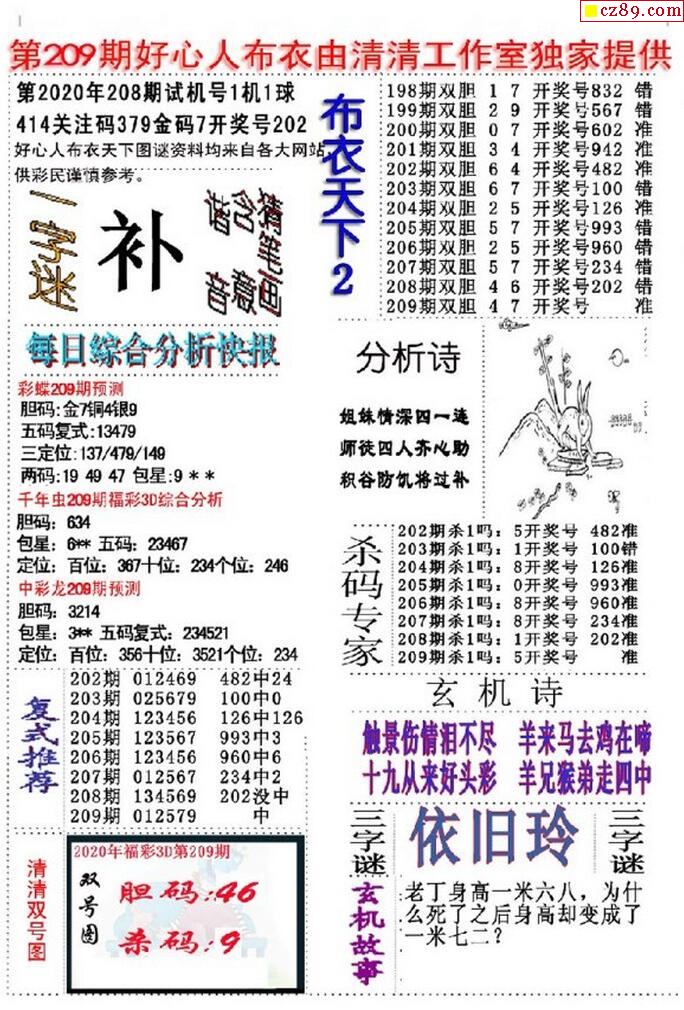 cz89.com
第209期好心人布衣由清清工作室独家提供
第2020年208期试机号1机1球
414关注码379金码7开奖号202
好心人布衣天下图谜资料均来自各大网站,
供彩民谨慎参考。
一字迷
补
猜笔画
含意
谐音
布衣天下2
198期双胆 1 7 开奖号832 错
199期双胆 2 9 开奖号567 错
200期双胆 0 7 开奖号602 准
201期双胆 3 4 开奖号942 准
202期双胆 6 4 开奖号482 准
203期双胆 6 7 开奖号100 错
204期双胆 2 5 开奖号126 准
205期双胆 5 7 开奖号993 错
206期双胆 2 5 开奖号960 错
207期双胆 5 7 开奖号234 错
208期双胆 4 6 开奖号202 错
209期双胆 4 7 开奖号 准
每日综合分析快报
彩蝶209期预测
胆码:金7铜4银9
五码复式:13479
三定位:137/479/149
两码:19 49 47 包星:9 * *
千年虫209期福彩3D综合分析
胆码: 634
包星: 6** 五码: 23467
定位: 百位: 367十位: 234个位: 246
中彩龙209期预测
胆码: 3214
包星: 3** 五码复式: 234521
定位: 百位: 356十位: 3521个位: 234
分析诗
姐妹情深四一连
师徒四人齐心助
积谷防饥将过补
杀码专家
202期杀1吗: 5开奖号 482准
203期杀1吗: 1开奖号 100错
204期杀1吗: 8开奖号 126准
205期杀1吗: 0开奖号 993准
206期杀1吗: 8开奖号 960准
207期杀1吗: 8开奖号 234准
208期杀1吗: 1开奖号 202准
209期杀1吗: 5开奖号 准
复式推荐
202期 012469 482中24
203期 025679 100中0
204期 123456 126中126
205期 123567 993中3
206期 123456 960中6
207期 012567 234中2
208期 134569 202没中
209期 012579 中
玄机诗
触景伤情泪不尽 羊来马去鸡在啼
十九从来好头彩 羊兄猴弟走四中
三字谜
依旧玲
三字谜
清清双号图
2020年福彩3D第209期
双号图
胆码:46
杀码:9
玄机故事
老丁身高一米六八，为什
么死了之后身高却变成了
一米七二？